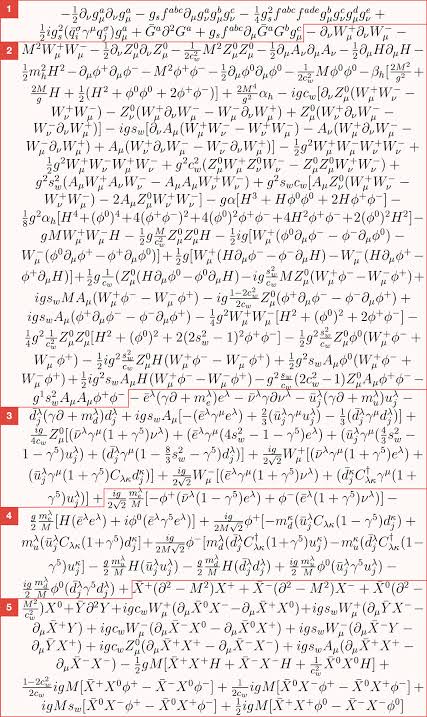 1 −½∂_νg^a_μ∂_νg^a_μ − g_s f^{abc}∂_μg^a_νg^b_μg^c_ν − ¼g²_s f^{abc}f^{ade}g^b_μg^c_νg^d_μg^e_ν +
½ig²_s(q̄^σ_iγ^μq^σ_j)g^a_μ + Ḡ^a∂²G^a + g_s f^{abc}∂_μḠ^aG^bg^c_μ − ∂_νW^+_μ∂_νW^−_μ −
2 M²W^+_μW^−_μ − ½∂_νZ^0_μ∂_νZ^0_μ − \frac{1}{2c²_w}M²Z^0_μZ^0_μ − ½∂_μA_ν∂_μA_ν − ½∂_μH∂_μH −
½m²_hH² − ∂_μφ^+∂_μφ^− − M²φ^+φ^− − ½∂_μφ^0∂_μφ^0 − \frac{1}{2c²_w}Mφ^0φ^0 − β_h[\frac{2M²}{g²} +
\frac{2M}{g}H + ½(H² + φ^0φ^0 + 2φ^+φ^−)] + \frac{2M⁴}{g²}α_h − igc_w[∂_νZ^0_μ(W^+_μW^−_ν −
W^+_νW^−_μ) − Z^0_ν(W^+_μ∂_νW^−_μ − W^−_μ∂_νW^+_μ) + Z^0_μ(W^+_ν∂_νW^−_μ −
W^−_ν∂_νW^+_μ)] − igs_w[∂_νA_μ(W^+_μW^−_ν − W^+_νW^−_μ) − A_ν(W^+_μ∂_νW^−_μ −
W^−_μ∂_νW^+_μ) + A_μ(W^+_ν∂_νW^−_μ − W^−_ν∂_νW^+_μ)] − ½g²W^+_μW^−_μW^+_νW^−_ν +
½g²W^+_μW^−_νW^+_μW^−_ν + g²c²_w(Z^0_μW^+_μZ^0_νW^−_ν − Z^0_μZ^0_μW^+_νW^−_ν) +
g²s²_w(A_μW^+_μA_νW^−_ν − A_μA_μW^+_νW^−_ν) + g²s_wc_w[A_μZ^0_ν(W^+_μW^−_ν −
W^+_νW^−_μ) − 2A_μZ^0_μW^+_νW^−_ν] − gα[H³ + Hφ^0φ^0 + 2Hφ^+φ^−] −
⅛g²α_h[H⁴ + (φ^0)⁴ + 4(φ^+φ^−)² + 4(φ^0)²φ^+φ^− + 4H²φ^+φ^− + 2(φ^0)²H²] −
gMW^+_μW^−_μH − ½g\frac{M}{c²_w}Z^0_μZ^0_μH − ½ig[W^+_μ(φ^0∂_μφ^− − φ^−∂_μφ^0) −
W^−_μ(φ^0∂_μφ^+ − φ^+∂_μφ^0)] + ½g[W^+_μ(H∂_μφ^− − φ^−∂_μH) − W^−_μ(H∂_μφ^+ −
φ^+∂_μH)] + ½g\frac{1}{c_w}(Z^0_μ(H∂_μφ^0 − φ^0∂_μH) − ig\frac{s²_w}{c_w}MZ^0_μ(W^+_μφ^− − W^−_μφ^+) +
igs_wMA_μ(W^+_μφ^− − W^−_μφ^+) − ig\frac{1−2c²_w}{2c_w}Z^0_μ(φ^+∂_μφ^− − φ^−∂_μφ^+) +
igs_wA_μ(φ^+∂_μφ^− − φ^−∂_μφ^+) − ¼g²W^+_μW^−_μ[H² + (φ^0)² + 2φ^+φ^−] −
¼g²\frac{1}{c²_w}Z^0_μZ^0_μ[H² + (φ^0)² + 2(2s²_w − 1)²φ^+φ^−] − ½g²\frac{s²_w}{c_w}Z^0_μφ^0(W^+_μφ^− +
W^−_μφ^+) − ½ig²\frac{s²_w}{c_w}Z^0_μH(W^+_μφ^− − W^−_μφ^+) + ½g²s_wA_μφ^0(W^+_μφ^− +
W^−_μφ^+) + ½ig²s_wA_μH(W^+_μφ^− − W^−_μφ^+) − g²\frac{s_w}{c_w}(2c²_w − 1)Z^0_μA_μφ^+φ^− −
g¹s²_wA_μA_μφ^+φ^− − ē^λ(γ∂ + m^λ_e)e^λ − ν̄^λγ∂ν^λ − ū^λ_j(γ∂ + m^λ_u)u^λ_j −
3 d̄^λ_j(γ∂ + m^λ_d)d^λ_j + igs_wA_μ[−(ē^λγ^μe^λ) + ⅔(ū^λ_jγ^μu^λ_j) − ⅓(d̄^λ_jγ^μd^λ_j)] +
\frac{ig}{4c_w}Z^0_μ[(ν̄^λγ^μ(1 + γ⁵)ν^λ) + (ē^λγ^μ(4s²_w − 1 − γ⁵)e^λ) + (ū^λ_jγ^μ(\frac{4}{3}s²_w −
1 − γ⁵)u^λ_j) + (d̄^λ_jγ^μ(1 − \frac{8}{3}s²_w − γ⁵)d^λ_j)] + \frac{ig}{2√2}W^+_μ[(ν̄^λγ^μ(1 + γ⁵)e^λ) +
(ū^λ_jγ^μ(1 + γ⁵)C_{λκ}d^κ_j)] + \frac{ig}{2√2}W^−_μ[(ē^λγ^μ(1 + γ⁵)ν^λ) + (d̄^κ_jC^†_{λκ}γ^μ(1 +
γ⁵)u^λ_j)] + \frac{ig}{2√2}\frac{m^λ_e}{M}[−φ^+(ν̄^λ(1 − γ⁵)e^λ) + φ^−(ē^λ(1 + γ⁵)ν^λ)] −
4 \frac{g}{2}\frac{m^λ_e}{M}[H(ē^λe^λ) + iφ^0(ē^λγ⁵e^λ)] + \frac{ig}{2M√2}φ^+[−m^κ_d(ū^λ_jC_{λκ}(1 − γ⁵)d^κ_j) +
m^λ_u(ū^λ_jC_{λκ}(1 + γ⁵)d^κ_j] + \frac{ig}{2M√2}φ^−[m^λ_d(d̄^λ_jC^†_{λκ}(1 + γ⁵)u^κ_j) − m^κ_u(d̄^λ_jC^†_{λκ}(1 −
γ⁵)u^κ_j] − \frac{g}{2}\frac{m^λ_u}{M}H(ū^λ_ju^λ_j) − \frac{g}{2}\frac{m^λ_d}{M}H(d̄^λ_jd^λ_j) + \frac{ig}{2}\frac{m^λ_u}{M}φ^0(ū^λ_jγ⁵u^λ_j) −
\frac{ig}{2}\frac{m^λ_d}{M}φ^0(d̄^λ_jγ⁵d^λ_j) + X̄^+(∂² − M²)X^+ + X̄^−(∂² − M²)X^− + X̄^0(∂² −
5 \frac{M²}{c²_w})X^0 + Ȳ∂²Y + igc_wW^+_μ(∂_μX̄^0X^− − ∂_μX̄^+X^0) + igs_wW^+_μ(∂_μȲX^− −
∂_μX̄^+Y) + igc_wW^−_μ(∂_μX̄^−X^0 − ∂_μX̄^0X^+) + igs_wW^−_μ(∂_μX̄^−Y −
∂_μȲX^+) + igc_wZ^0_μ(∂_μX̄^+X^+ − ∂_μX̄^−X^−) + igs_wA_μ(∂_μX̄^+X^+ −
∂_μX̄^−X^−) − ½gM[X̄^+X^+H + X̄^−X^−H + \frac{1}{c²_w}X̄^0X^0H] +
\frac{1−2c²_w}{2c_w}igM[X̄^+X^0φ^+ − X̄^−X^0φ^−] + \frac{1}{2c_w}igM[X̄^0X^−φ^+ − X̄^0X^+φ^−] +
igMs_w[X̄^0X^−φ^+ − X̄^0X^+φ^−] + ½igM[X̄^+X^+φ^0 − X̄^−X^−φ^0]